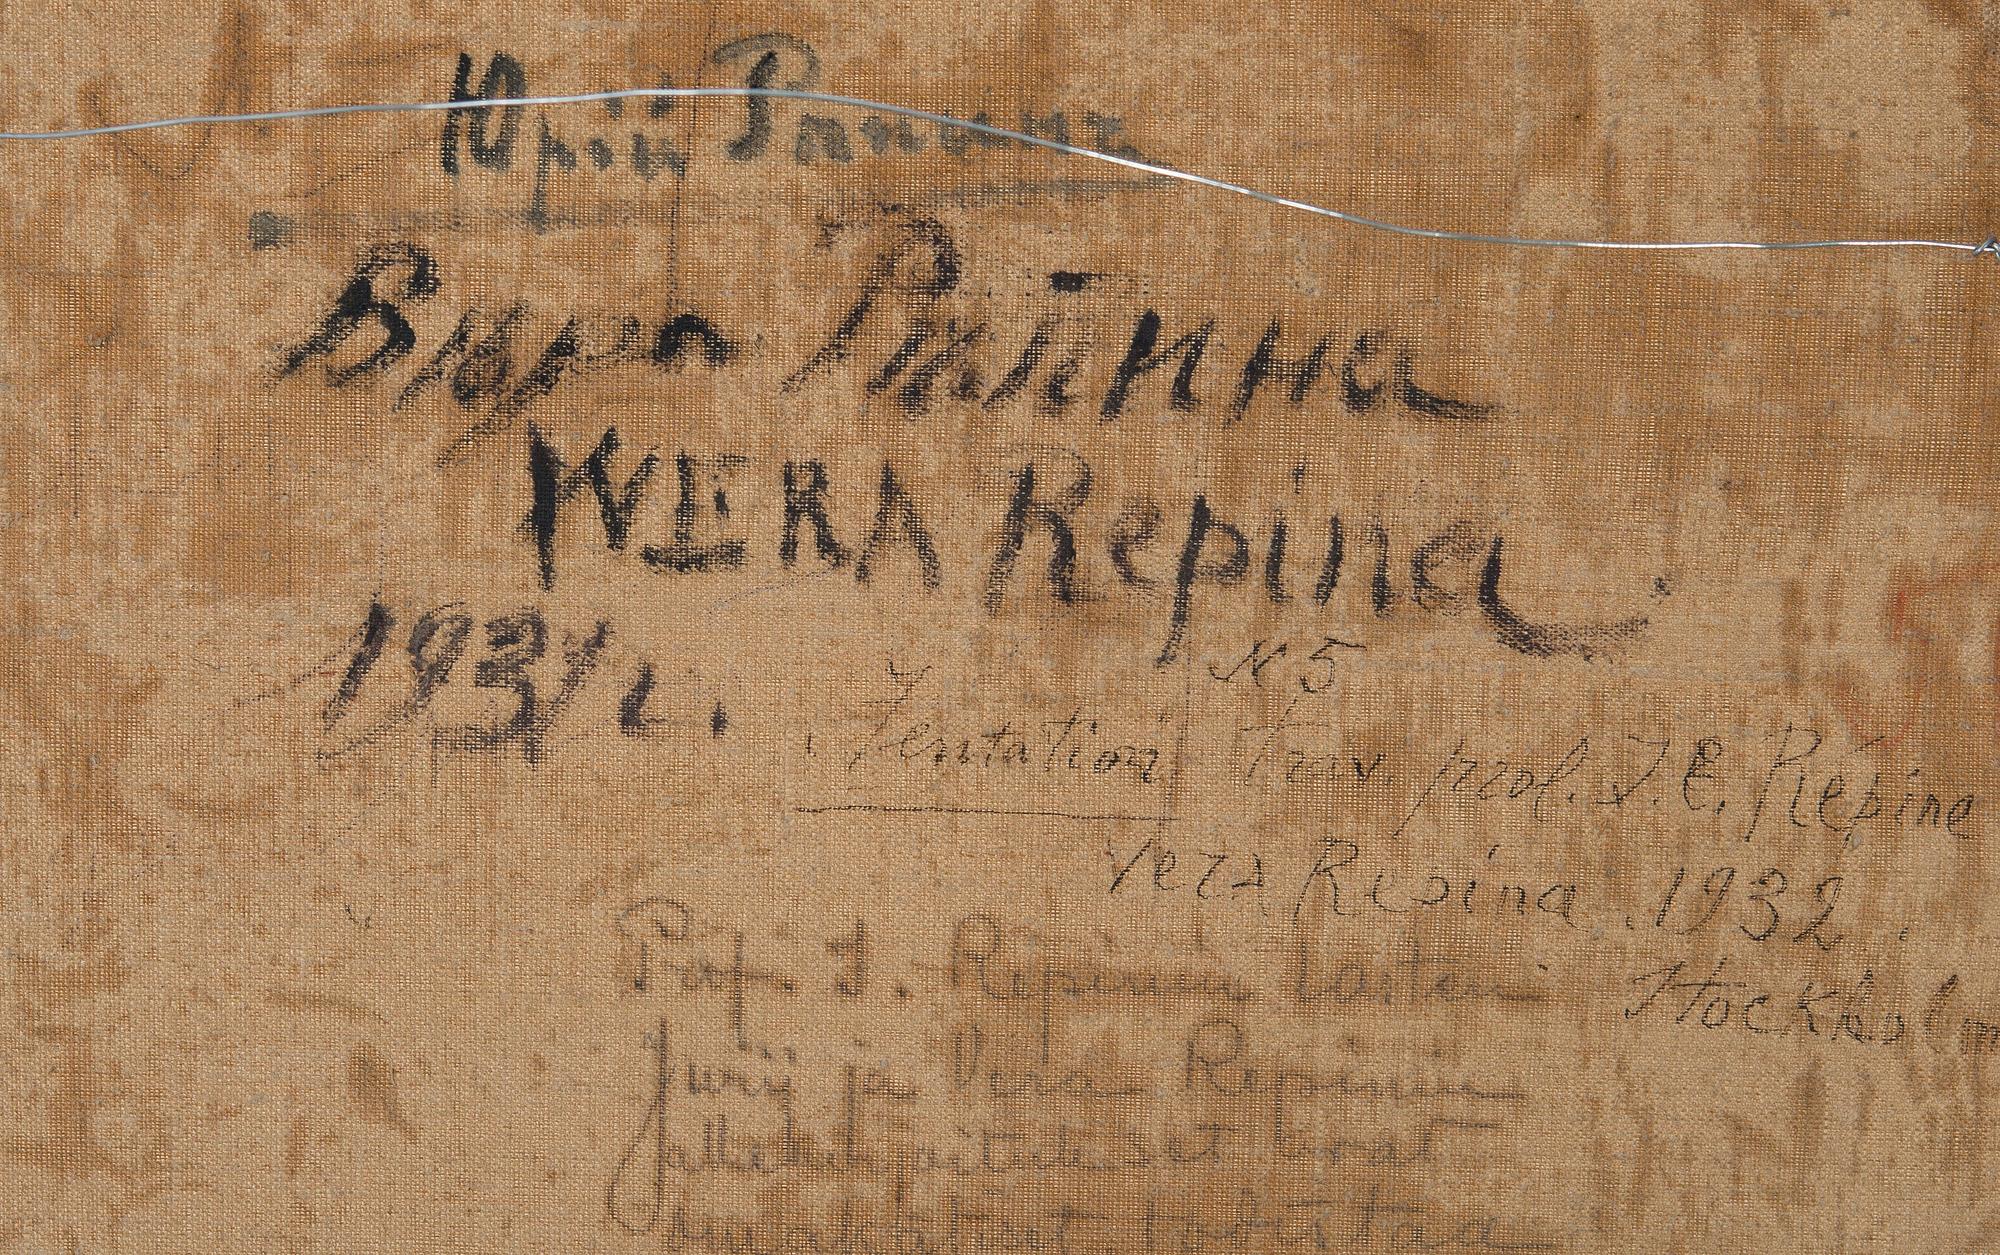 Юрій Рѣпинъ
Вѣра Рѣпина
WERA Repina
1931 г.
N 5
Tentation trav. prof. I. E. Répine
Vera Repina. 1932.
Stockholm
Prof. I. Repinin lasten
Jurij ja Vera Repinin